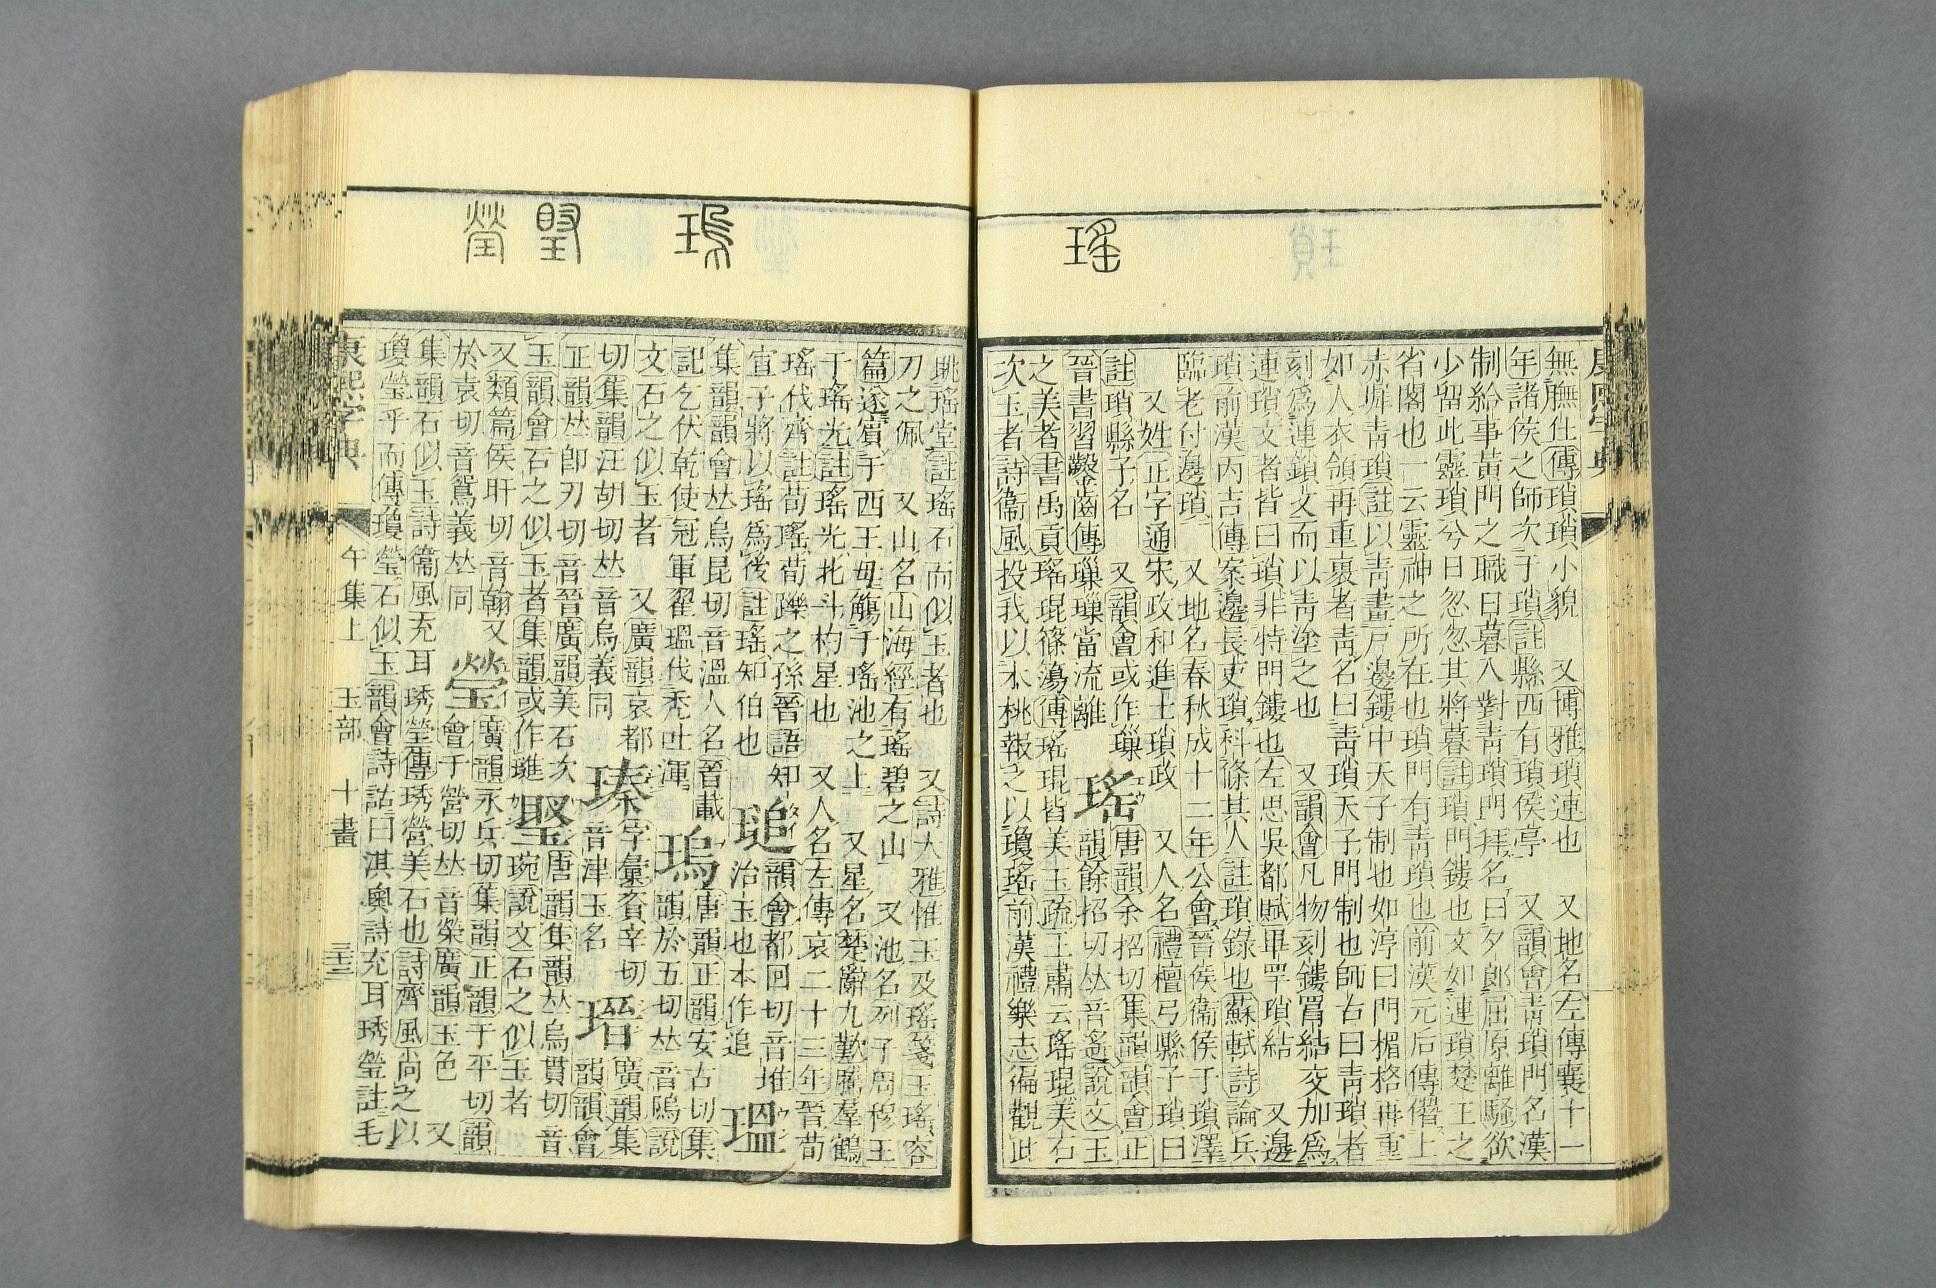 瑤
無膴仕傳瑣瑣小貌 又博雅瑣連也 又地名左傳襄十一
年諸侯之師次于瑣註縣西有瑣侯亭 又韻會靑瑣門名漢
制給事黃門之職日暮入對靑瑣門拜名曰夕郞屈原離騷欲
少留此靈瑣兮日忽忽其將暮註瑣門鏤也文如連瑣楚王之
省閣也一云靈神之所在也瑣門有靑瑣也前漢元后傳僭上
赤墀靑瑣註以靑畫戸邊鏤中天子制也如淳曰門楣格再重
如人衣領再重裏者靑名曰靑瑣天子門制也師古曰靑瑣者
刻爲連鎖文而以靑塗之也 又韻會凡物刻鏤罥結交加爲
連瑣文者皆曰瑣非特門鏤也左思吳都賦罼罕瑣結 又邊
瑣前漢丙吉傳案邊長吏瑣科條其人註瑣錄也蘇軾詩論兵
臨老付邊瑣 又地名春秋成十二年公會晉侯衞侯于瑣澤
又姓正字通宋政和進士瑣政 又人名禮檀弓縣子瑣曰
註瑣縣子名 又韻會或作璅 瑤 唐韻余招切集韻韻會正
晉書習鑿齒傳璅璅當流離 韻餘招切𠀤音遙說文玉
之美者書禹貢瑤琨篠簜傳瑤琨皆美玉疏王肅云瑤琨美石
次玉者詩衞風投我以木桃報之以瓊瑤前漢禮樂志徧觀此
瑦 䂩 瑩
眺瑤堂註瑤石而似玉者也 又詩大雅惟玉及瑤箋玉瑤容
刀之佩 又山名山海經有瑤碧之山 又池名列子周穆王
篇遂賔于西王母觴于瑤池之上 又星名楚辭九歎騰羣鶴
于瑤光註瑤光北斗杓星也 又人名左傳哀二十三年晉荀
瑤伐齊註荀瑤荀躒之孫晉語知 瑤
宣子將以瑤爲後註瑤知伯也 塠 韻會都回切音堆
治玉也本作追 瑥
集韻韻會𠀤烏昆切音溫人名晉載 瑦 唐韻正韻安古切集
記乞伏乾使冠軍翟瑥伐禿吐渾 韻於五切𠀤音隝說
文石之似玉者 又廣韻哀都
切集韻汪胡切𠀤音烏義同 瑧 字彙賚辛切
音津玉名 瑨 廣韻集
韻韻會
正韻𠀤卽刃切音晉廣韻美石次
玉韻會石之似玉者集韻或作璡
唐韻集韻𠀤烏貫切音
琬說文石之似玉者
又類篇侯旰切音翰又
於袁切音鴛義𠀤同 瑩 廣韻永兵切集韻正韻于平切韻
會于營切𠀤音榮廣韻玉色 又
集韻石似玉詩衞風充耳琇瑩傳琇瑩美石也詩齊風尚之以
瓊瑩乎而傳瓊瑩石似玉韻會詩詁曰淇奧詩充耳琇瑩註毛
康熙字典 午集上 玉部 十畫 三三